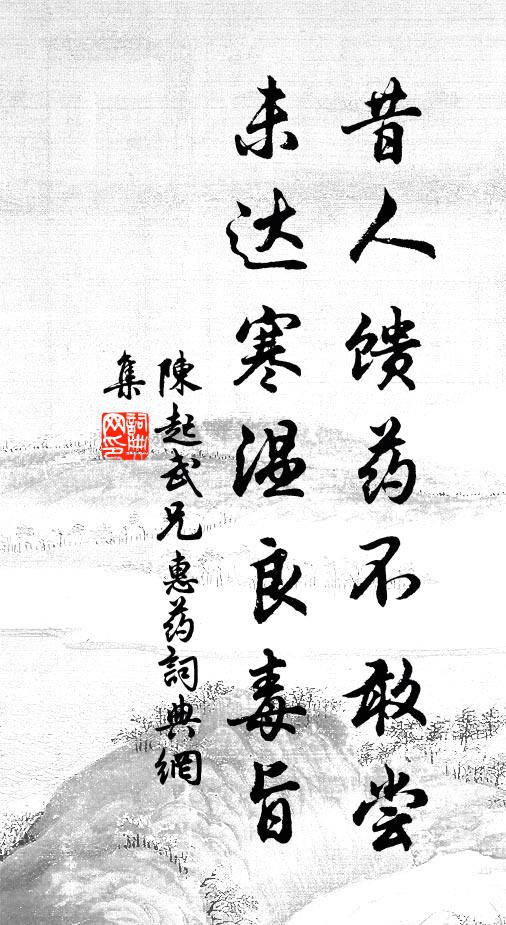 昔人馈药不敢尝
未达寒温良毒旨
陳起武兄惠药詞典網
集
詞典网印